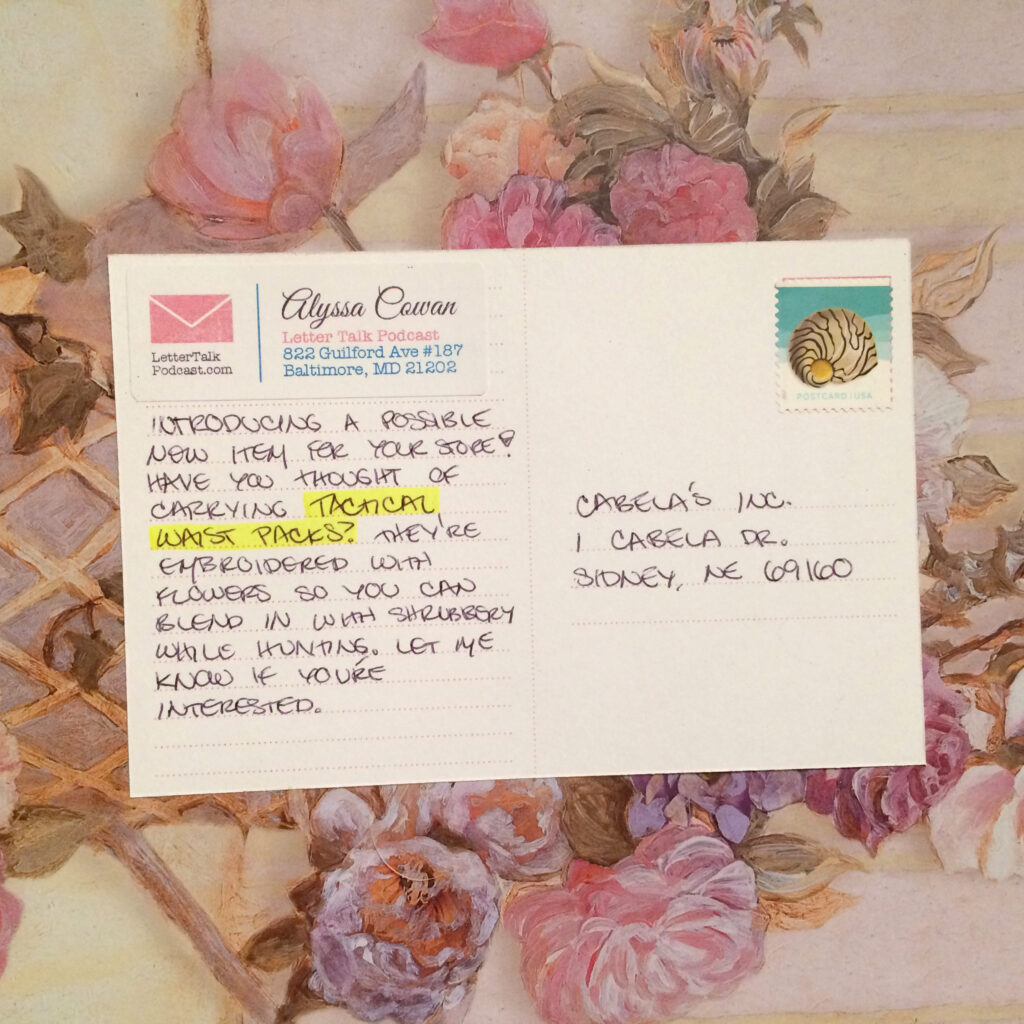 LetterTalk
Podcast.com
Alyssa Cowan
Letter Talk Podcast
822 Guilford Ave #187
Baltimore, MD 21202
INTRODUCING A POSSIBLE
NEW ITEM FOR YOUR STORE!
HAVE YOU THOUGHT OF
CARRYING TACTICAL
WAIST PACKS? THEY'RE
EMBROIDERED WITH
FLOWERS SO YOU CAN
BLEND IN WITH SHRUBBERY
WHILE HUNTING. LET ME
KNOW IF YOU'RE
INTERESTED.
POSTCARD | USA
CABELA'S INC.
1 CABELA DR.
SIDNEY, NE 69160